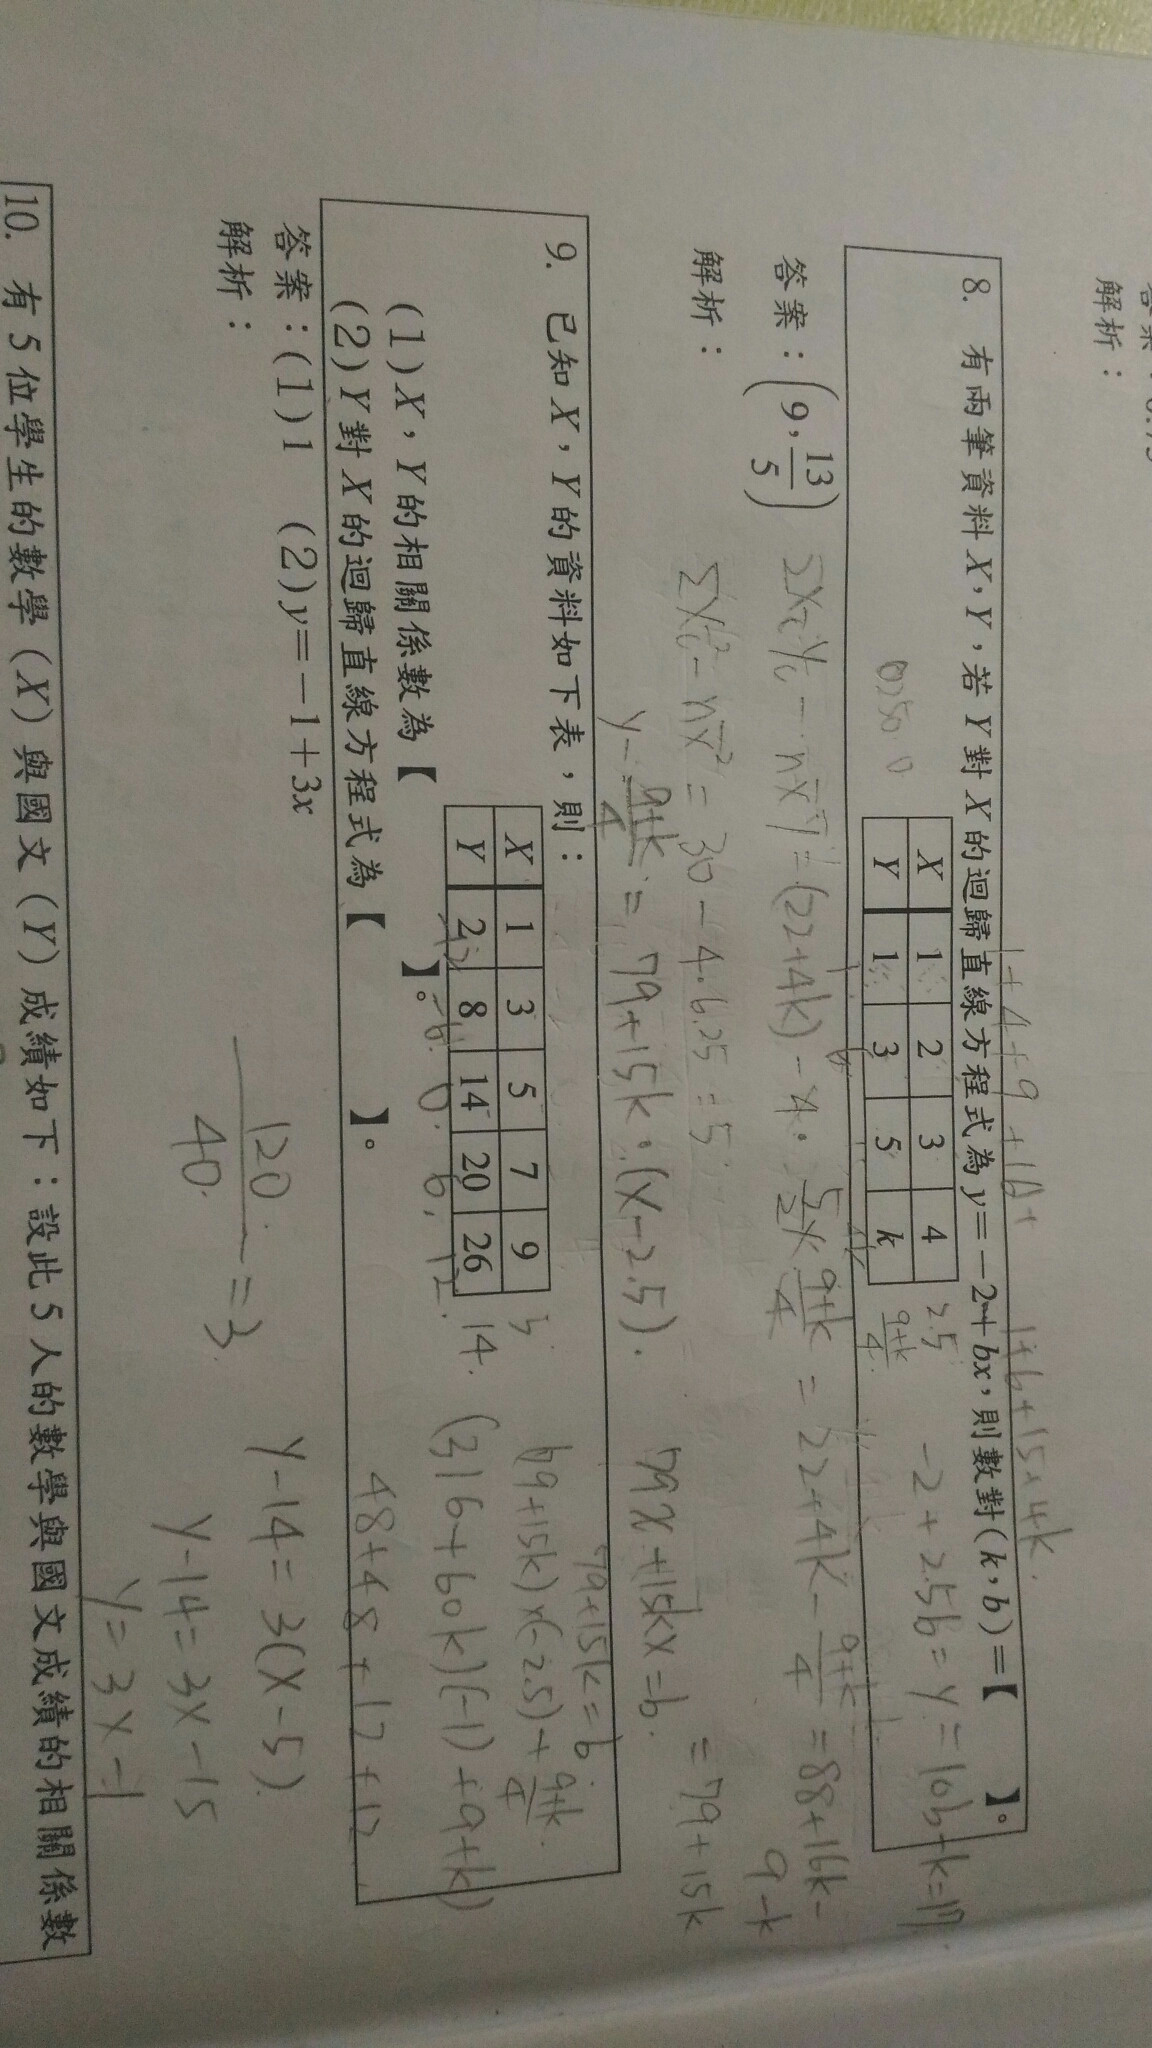 解析：
8. 有兩筆資料X，Y，若Y對X的迴歸直線方程式為y=-2+bx，則數對(k,b)=【 】。
X 1 2 3 4
Y 1 3 5 k
2.5
9+k/4
-2+2.5b=y=10b+k=17
答案：(9, 13/5)
解析：
Σx²-nx̄²=30-4·6.25=5
y-9+k/4=79+15k·(x-2.5).
79x+15kx=b.
=79+15k
79+15k=b
9. 已知X，Y的資料如下表，則：
X 1 3 5 7 9
Y 2 8 14 20 26
14.
(79+15k)×(-2.5)+9+k/4.
(1)X，Y的相關係數為【 】。
(316+60k)(-1)+9+k)
(2)Y對X的迴歸直線方程式為【 】。
48+48+12+12
答案：(1)1 (2)y=-1+3x
解析：
120/40=3
y-14=3(x-5)
y-14=3x-15
y=3x-1
10. 有5位學生的數學(X)與國文(Y)成績如下：設此5人的數學與國文成績的相關係數